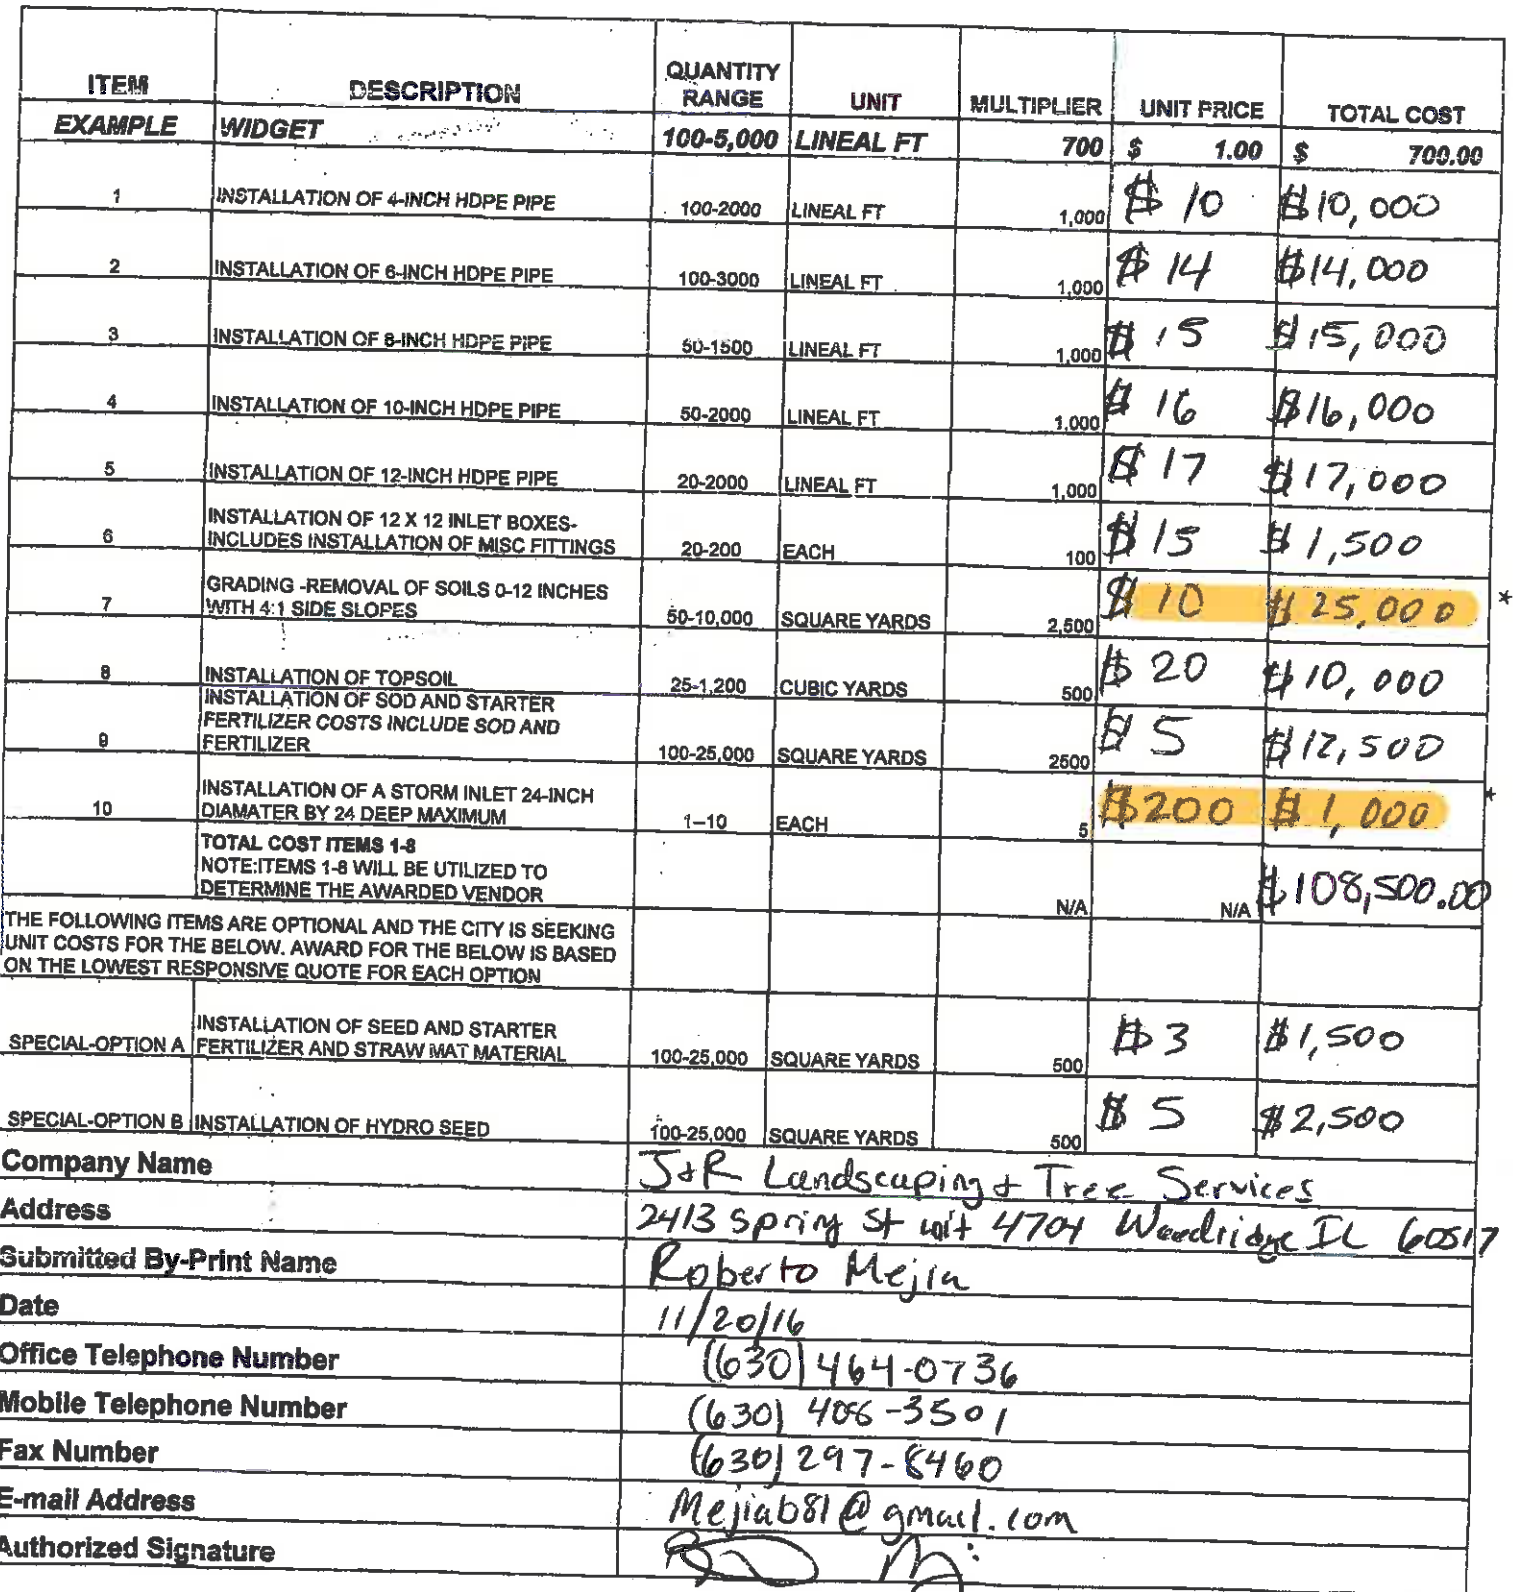 ITEM DESCRIPTION QUANTITY RANGE UNIT MULTIPLIER UNIT PRICE TOTAL COST
EXAMPLE WIDGET 100-5,000 LINEAL FT 700 $ 1.00 $ 700.00
1 INSTALLATION OF 4-INCH HDPE PIPE 100-2000 LINEAL FT 1,000 $ 10 $10,000
2 INSTALLATION OF 6-INCH HDPE PIPE 100-3000 LINEAL FT 1,000 $ 14 $14,000
3 INSTALLATION OF 8-INCH HDPE PIPE 50-1500 LINEAL FT 1,000 $ 15 $15,000
4 INSTALLATION OF 10-INCH HDPE PIPE 50-2000 LINEAL FT 1,000 $ 16 $16,000
5 INSTALLATION OF 12-INCH HDPE PIPE 20-2000 LINEAL FT 1,000 $ 17 $17,000
INSTALLATION OF 12 X 12 INLET BOXES-
6 INCLUDES INSTALLATION OF MISC FITTINGS 20-200 EACH 100 $15 $1,500
GRADING -REMOVAL OF SOILS 0-12 INCHES
7 WITH 4:1 SIDE SLOPES 50-10,000 SQUARE YARDS 2,500 $ 10 $ 25,000 *
8 INSTALLATION OF TOPSOIL 25-1,200 CUBIC YARDS 500 $ 20 $10,000
INSTALLATION OF SOD AND STARTER
FERTILIZER COSTS INCLUDE SOD AND
9 FERTILIZER 100-25,000 SQUARE YARDS 2500 $ 5 $12,500
INSTALLATION OF A STORM INLET 24-INCH
10 DIAMATER BY 24 DEEP MAXIMUM 1-10 EACH 5 $200 $ 1,000 *
TOTAL COST ITEMS 1-8
NOTE:ITEMS 1-8 WILL BE UTILIZED TO
DETERMINE THE AWARDED VENDOR N/A N/A $108,500.00
THE FOLLOWING ITEMS ARE OPTIONAL AND THE CITY IS SEEKING
UNIT COSTS FOR THE BELOW. AWARD FOR THE BELOW IS BASED
ON THE LOWEST RESPONSIVE QUOTE FOR EACH OPTION
INSTALLATION OF SEED AND STARTER
SPECIAL-OPTION A FERTILIZER AND STRAW MAT MATERIAL 100-25,000 SQUARE YARDS 500 $3 $1,500
SPECIAL-OPTION B INSTALLATION OF HYDRO SEED 100-25,000 SQUARE YARDS 500 $ 5 $2,500
Company Name J+R Landscaping + Tree Services
Address 2413 Spring St unit 4704 Woodridge IL 60517
Submitted By-Print Name Roberto Mejia
Date 11/20/16
Office Telephone Number (630) 464-0736
Mobile Telephone Number (630) 408-3501
Fax Number (630) 297-8460
E-mail Address Mejiab81@gmail.com
Authorized Signature